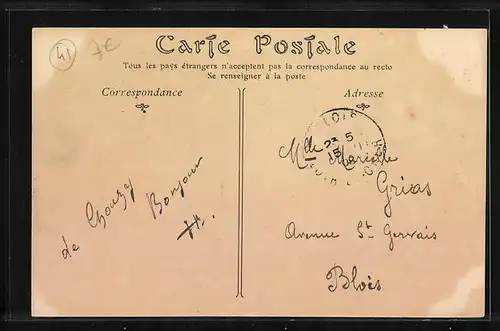 41
7€
Carte Postale
Tous les pays étrangers n'acceptent pas la correspondance au recto
Se renseigner à la poste
Correspondance
Adresse
Bonjour
de Chouzy
Mlle
Avenue St Gervais
Blois